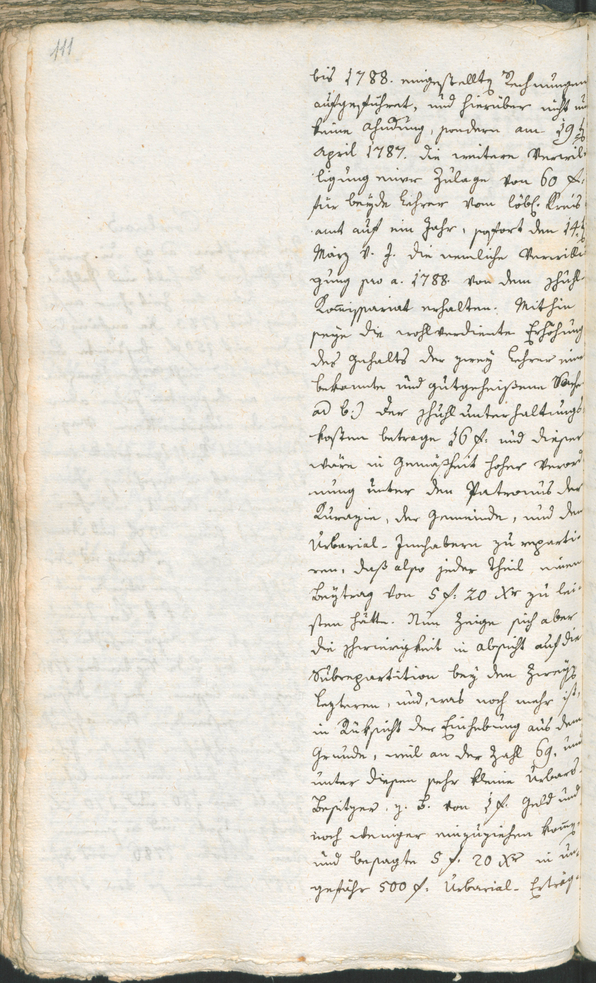 111
bis 1788. eingestellte Rechnungen
aufgeführet, und hierüber nicht nur
keine Ahndung, sondern am 19t
April 1787. die weitere Verwil-
ligung einer Zulage von 60 f.
für beyde Lehrer vom löbl. Kreis-
amt auf ein Jahr, sofort den 14t
März v. J. die nemliche Verwilli-
gung pro a. 1788 von dem Schul-
Kommissariat erhalten. Mithin
seye die wohlverdiente Erhöhung
des Gehalts der zwey Lehrer eine
bekannte und gutgeheißene Sache
ad b.) Der Schulunterhaltungs-
kosten betrage 16 f. und dieser
wäre in Gemäßheit hoher Verord-
nung unter den Patronus der
Kurazie, der Gemeinde, und den
Urbarial-Innhabern zu reparti-
ren, daß also jeder Theil einen
Beytrag von 5 f. 20 Xr zu lei-
sten hätte. Nun zeige sich aber
die schwierigkeit in absicht auf die
Subrepartition bey den zwey
lezteren, und, was noch mehr ist,
in Rüksicht der Einhebung aus dem
Grunde, weil an der Zahl 69. und
unter diesen sehr kleine Urbars-
Besitzer z. B. von 1 f. Geld und
noch weniger einzuziehen kome,
und besagte 5 f. 20 Xr in un-
gefähr 500 f. Urbarial-Erträg-